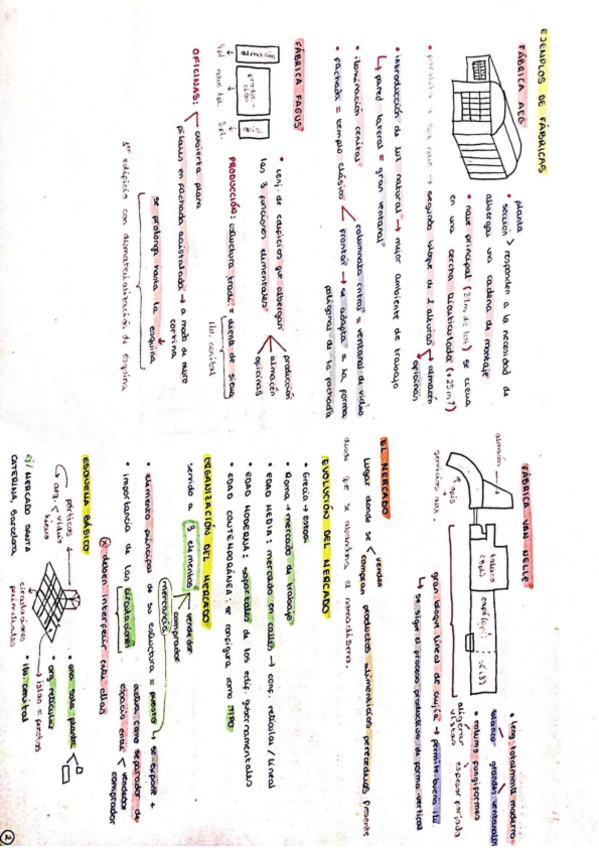 EJEMPLOS DE FÁBRICAS
FÁBRICA AEG
planta
sección > responden a la necesidad de
albergar una cadena de montaje
• nave principal se eleva
en una cercha triarticulada (+25m)
• paralela a la nave → segundo bloque de 2 alturas < almacén
oficinas
• introducción de luz natural → mejor ambiente de trabajo
↳ pared lateral = gran ventanal
• iluminación cenital
• fachada = templo clásico < columnata central = ventanal de vidrio
frontón → se adapta a la forma
poligonal de la fachada
FÁBRICA FAGUS
almacén
produc-
ción
• conj. de edificios que albergan
las 3 porciones elementales < producción
almacén
oficinas
PRODUCCIÓN: estructura tradic. = diente de sierra
ilu. cenital
OFICINAS: < cubierta plana
pilares en fachada acristalada → a modo de muro
cortina
se prolonga hasta la esquina
1er edificio con desmaterialización de esquina
FÁBRICA VAN NELLE
almacén
tabaco
café
• leng. totalmente moderno
blanco grandes ventanales
• columnas fungiformes
aligerar espesor forjado
vigas
gran bloque lineal de crujía → permite buena ilu
↳ se sigue el proceso productivo de forma vertical
EL MERCADO
Lugar donde se < venden
compran productos alimenticios perecederos presente
desde que se abandona el nomadismo.
EVOLUCIÓN DEL MERCADO
• Grecia → estoa
• Roma → mercado de trabajo
• EDAD MEDIA: mercado en calles → conf. reticular/lineal
• EDAD MODERNA: soportales de los edif. gubernamentales
• EDAD CONTEMPORÁNEA: se configura como TIPO
ORGANIZACIÓN DEL MERCADO
servido a 3 elementos < vendedor
comprador
mercancía
• elemento principal de su estructura = puesto → se expone +
actúa como separador de
espacio entre < vendedor
comprador
• importancia de las circulaciones
deben interferir entre ellas
ESQUEMA BÁSICO
• una sola planta
• org. reticular
• ilu. cenital
→ islas = puestos
circulaciones
perimetrales
ej/ MERCADO SANTA
CATERINA Barcelona
2